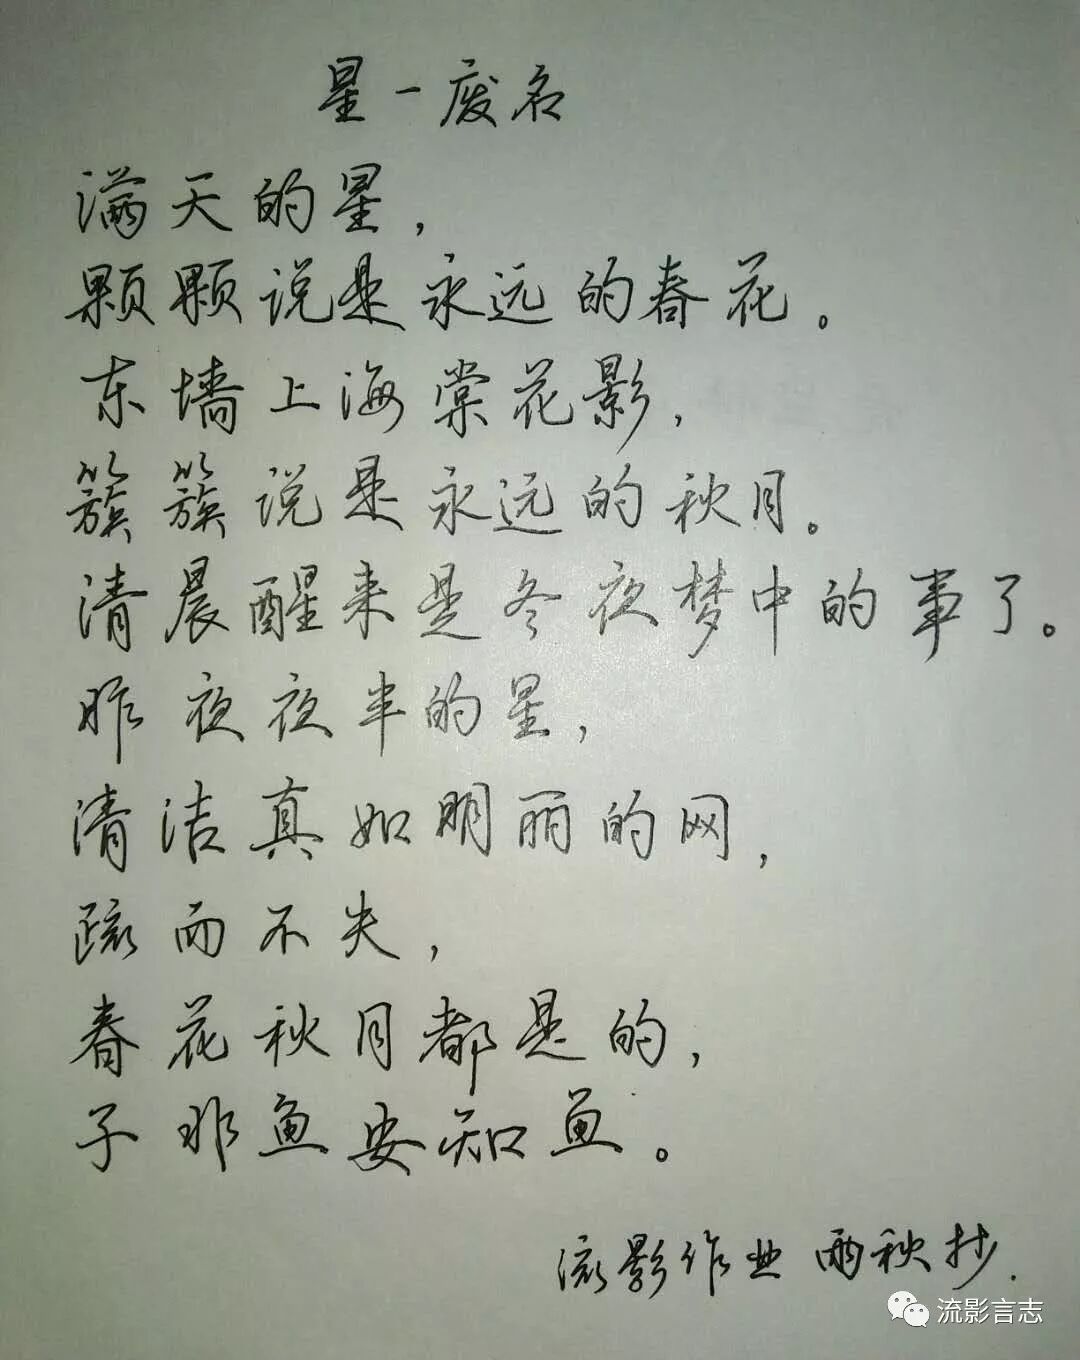 星－废名
满天的星，
颗颗说是永远的春花。
东墙上海棠花影，
簇簇说是永远的秋月。
清晨醒来是冬夜梦中的事了。
昨夜夜半的星，
清洁真如明丽的网，
疏而不失，
春花秋月都是的，
子非鱼安知鱼。
流影作业 雨秋抄.
流影言志